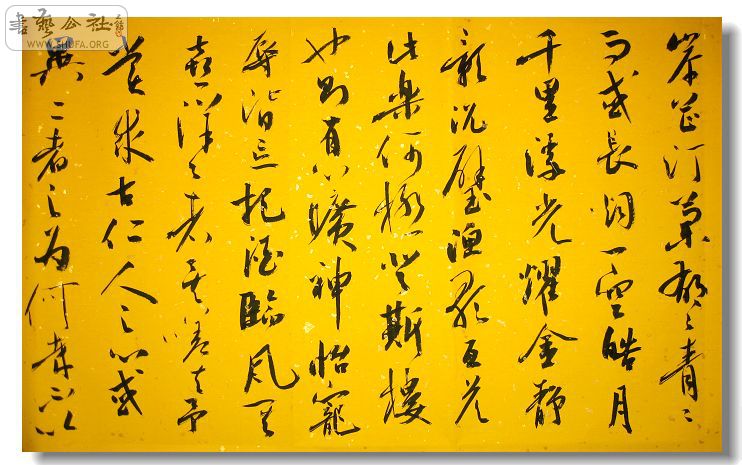 岸芷汀蘭郁々青々
而或長烟一空皓月
千里浮光耀金靜
影沉璧漁歌互答
此樂何極登斯樓
也則有心曠神怡寵
辱皆忘把酒臨風其
喜洋々者矣嗟夫予
嘗求古仁人之心或
異二者之為何哉不以
書藝公社
WWW.SHUFA.ORG